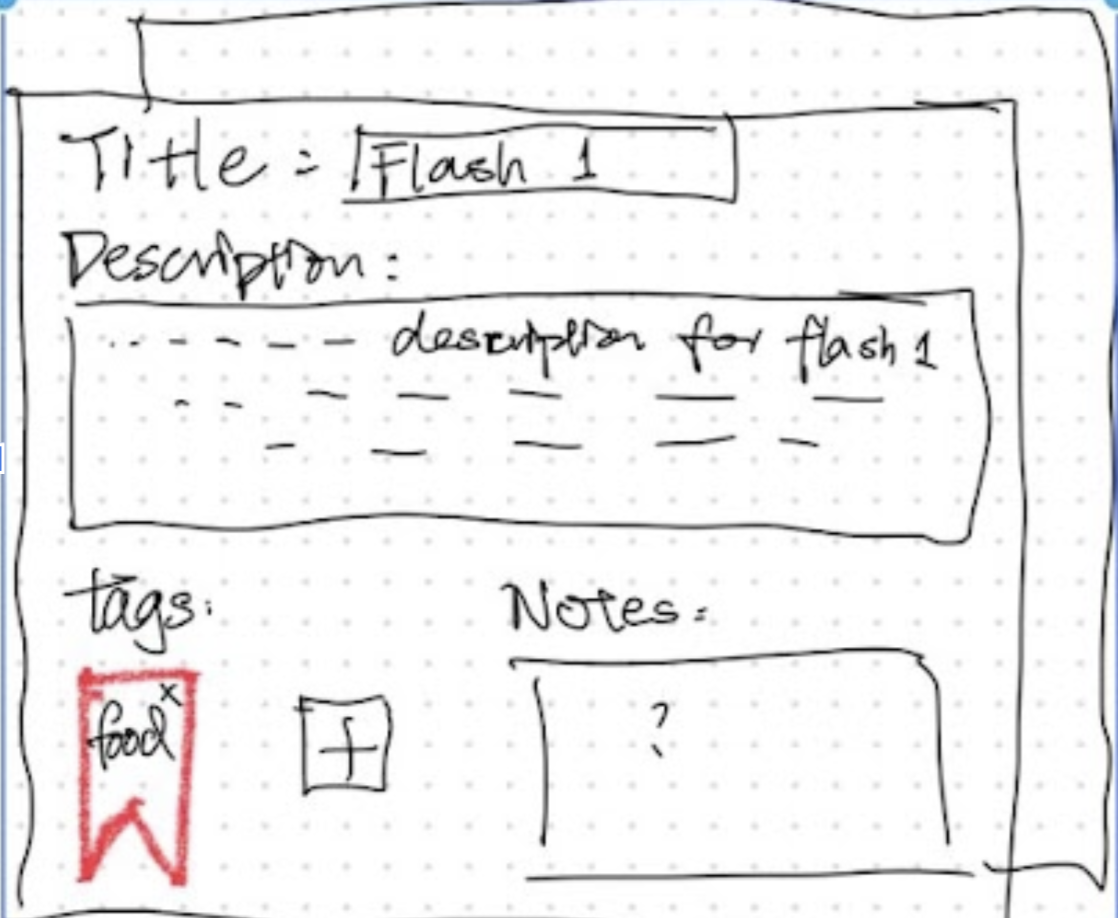 Title: Flash 1
Description:
description for flash 1
tags:
Notes:
food x
+
?